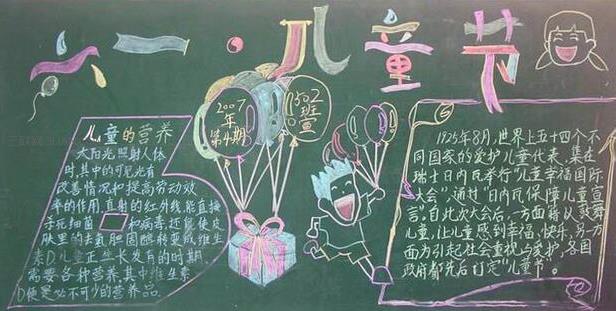 六一·儿童节
2007
年
第4期
1502
班
宣
儿童的营养
太阳光照射人体
时,其中的可见光有
改善情况和提高劳动效
率的作用,直射的红外线能直接
杀死细菌和病毒,还能使皮
肤里的去氢胆固醇转变成维生
素D,儿童正生长发育的时期,
需要各种营养,其中维生素
D便是必不可少的营养品.
1925年8月,世界上五十四个不
同国家的爱护儿童代表,集在
瑞士日内瓦举行"儿童幸福国际
大会",通过"日内瓦保障儿童宣
言",自此次大会后,一方面藉以鼓舞
儿童,让儿童感到幸福、快乐,另一方
面为引起社会重视与爱护,各国
政府都先后订定"儿童节".